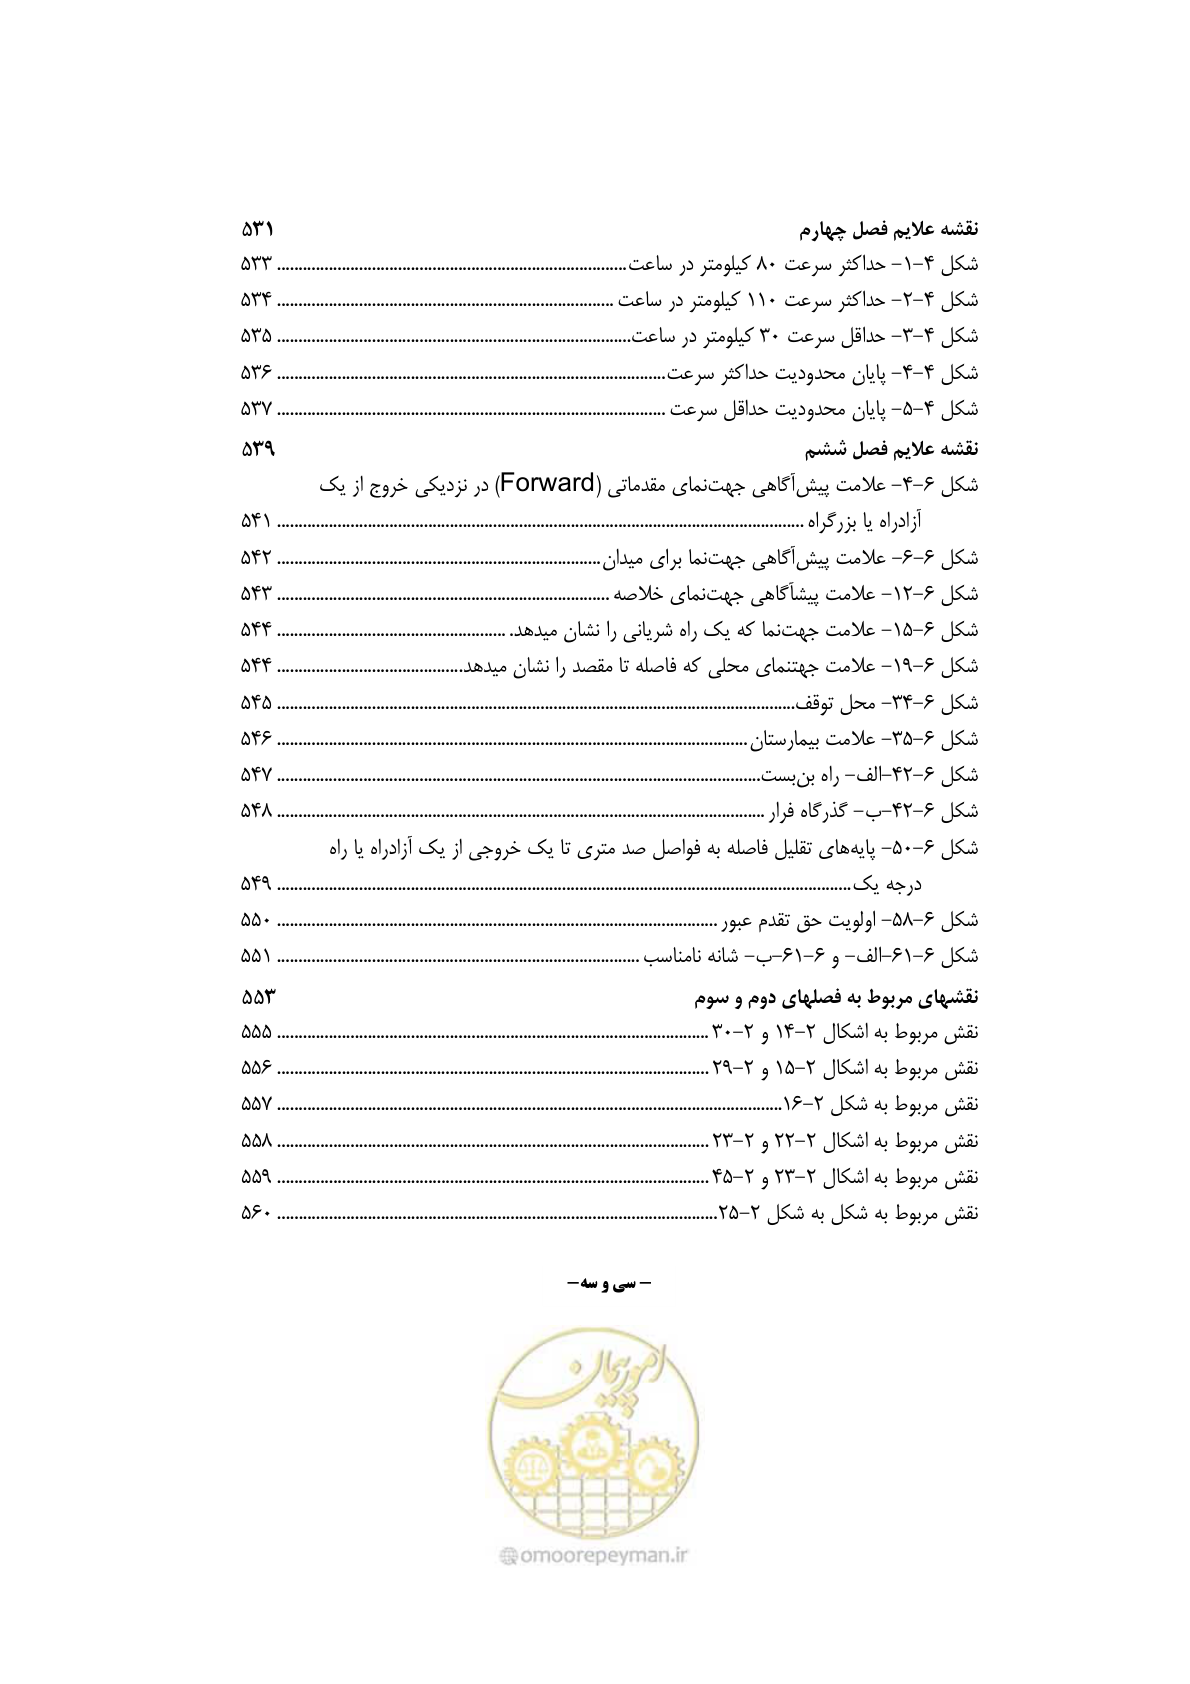 نقشه علایم فصل چهارم ۵۳۱
شکل ۴-۱- حداکثر سرعت ۸۰ کیلومتر در ساعت ۵۳۳
شکل ۴-۲- حداکثر سرعت ۱۱۰ کیلومتر در ساعت ۵۳۴
شکل ۴-۳- حداقل سرعت ۳۰ کیلومتر در ساعت ۵۳۵
شکل ۴-۴- پایان محدودیت حداکثر سرعت ۵۳۶
شکل ۴-۵- پایان محدودیت حداقل سرعت ۵۳۷
نقشه علایم فصل ششم ۵۳۹
شکل ۶-۴- علامت پیش‌آگاهی جهت‌نمای مقدماتی (Forward) در نزدیکی خروج از یک
آزادراه یا بزرگراه ۵۴۱
شکل ۶-۶- علامت پیش‌آگاهی جهت‌نما برای میدان ۵۴۲
شکل ۶-۱۲- علامت پیشآگاهی جهت‌نمای خلاصه ۵۴۳
شکل ۶-۱۵- علامت جهت‌نما که یک راه شریانی را نشان میدهد. ۵۴۴
شکل ۶-۱۹- علامت جهتنمای محلی که فاصله تا مقصد را نشان میدهد ۵۴۴
شکل ۶-۳۴- محل توقف ۵۴۵
شکل ۶-۳۵- علامت بیمارستان ۵۴۶
شکل ۶-۴۲-الف- راه بن‌بست ۵۴۷
شکل ۶-۴۲-ب- گذرگاه فرار ۵۴۸
شکل ۶-۵۰- پایه‌های تقلیل فاصله به فواصل صد متری تا یک خروجی از یک آزادراه یا راه
درجه یک ۵۴۹
شکل ۶-۵۸- اولویت حق تقدم عبور ۵۵۰
شکل ۶-۶۱-الف- و ۶-۶۱-ب- شانه نامناسب ۵۵۱
نقشهای مربوط به فصلهای دوم و سوم ۵۵۳
نقش مربوط به اشکال ۲-۱۴ و ۲-۳۰ ۵۵۵
نقش مربوط به اشکال ۲-۱۵ و ۲-۲۹ ۵۵۶
نقش مربوط به شکل ۲-۱۶ ۵۵۷
نقش مربوط به اشکال ۲-۲۲ و ۲-۲۳ ۵۵۸
نقش مربوط به اشکال ۲-۲۳ و ۲-۴۵ ۵۵۹
نقش مربوط به شکل به شکل ۲-۲۵ ۵۶۰
- سی و سه-
امور پیمان
@omoorepeyman.ir